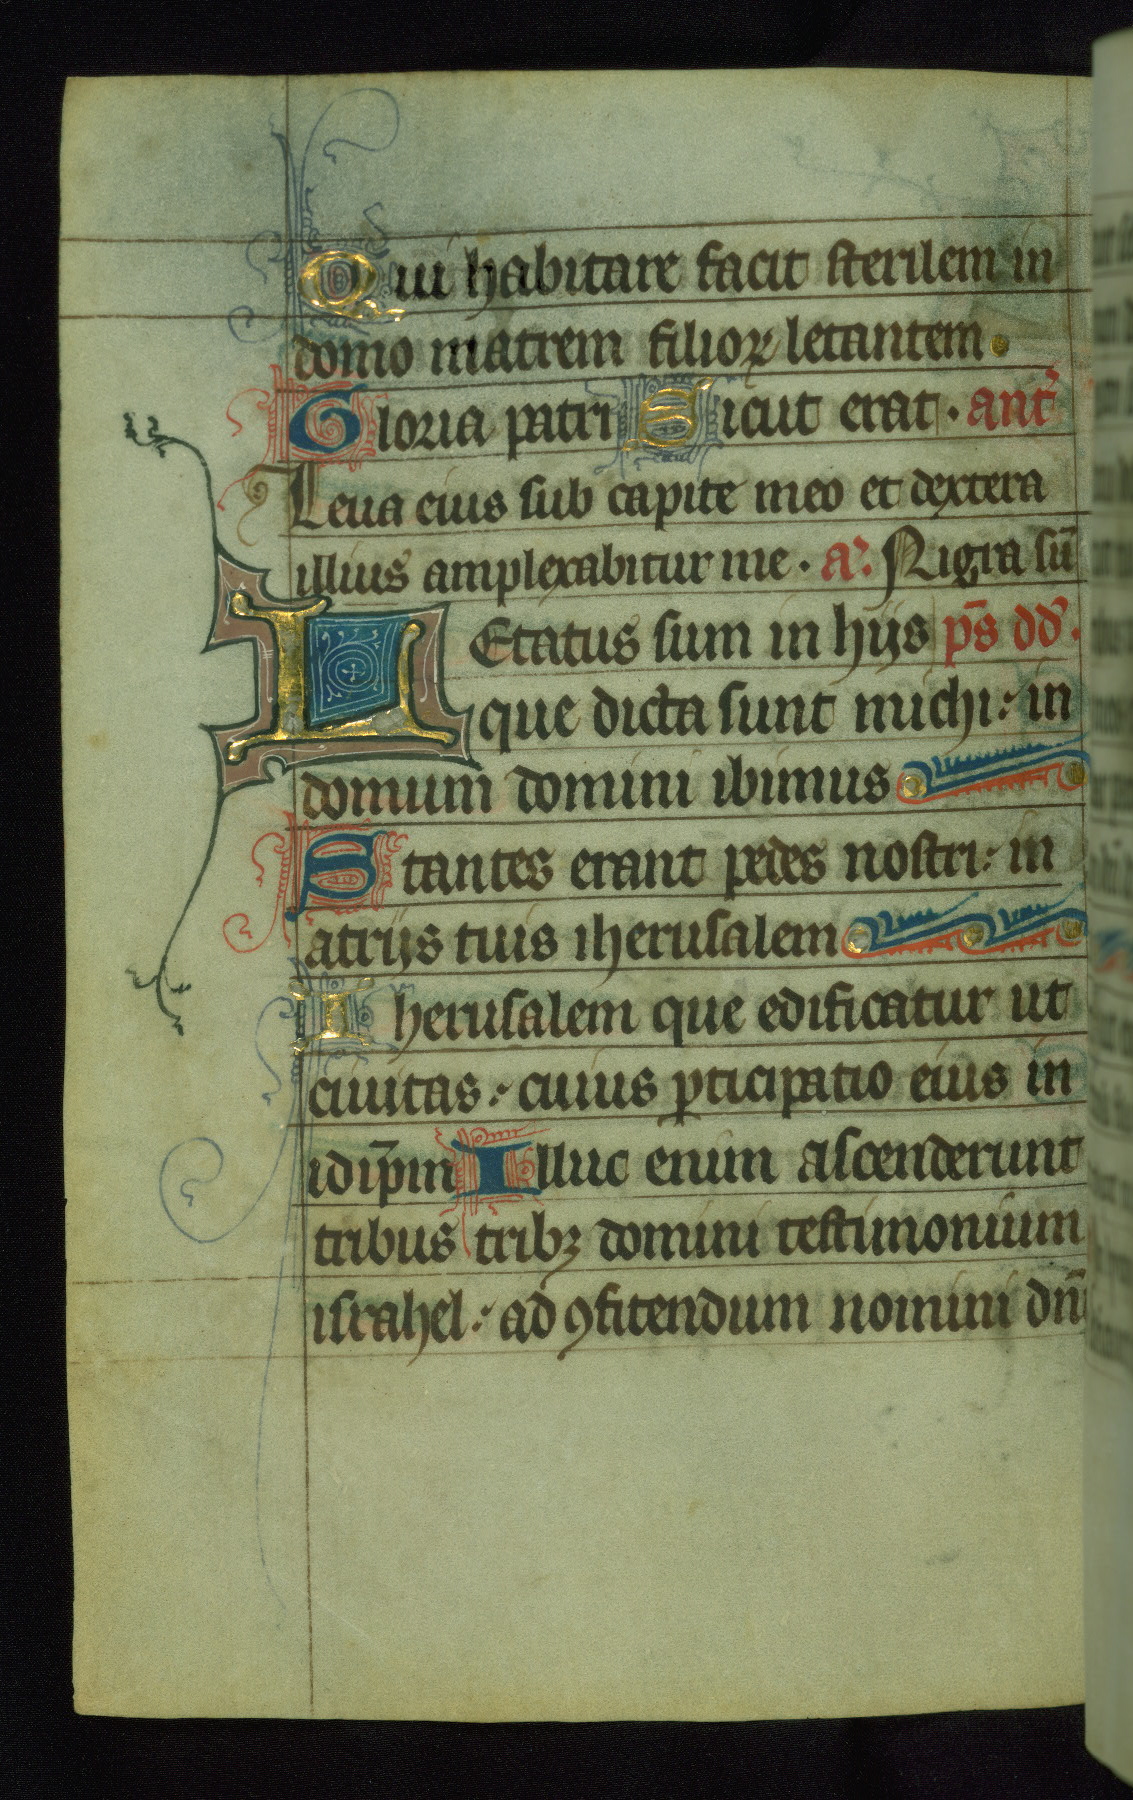 Qui habitare facit sterilem in
domo matrem filioꝝ letantem.
Gloria patri Sicut erat · ant̄
Leua eius sub capite meo et dextera
illius amplexabitur me · a᷎. Nigra sū
LEtatus sum in hijs p̄s dd̄.
que dicta sunt michi : in
domum domini ibimus
Stantes erant pedes nostri : in
atrijs tuis iherusalem
Iherusalem que edificatur ut
ciuitas : cuius ꝑticipatio eius in
idip̄m Illuc enim ascenderunt
tribus tribꝫ domini testimonium
israhel : ad ꝯfitendum nomini dn̄i